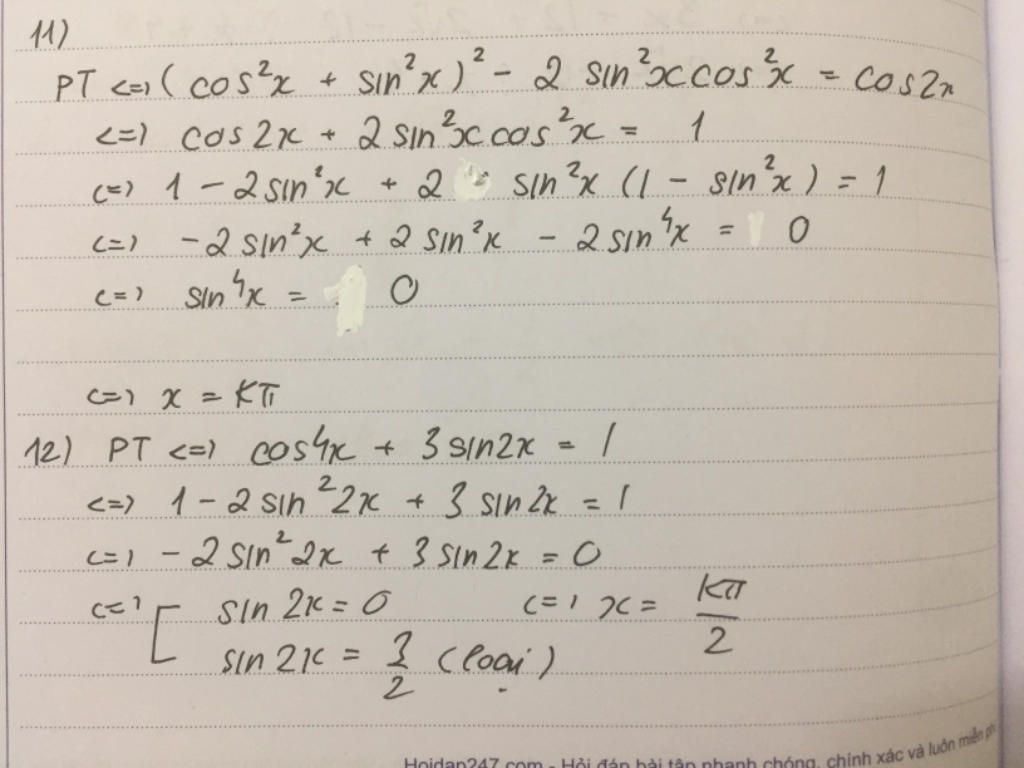 11)
PT <=> (cos²x + sin²x)² - 2 sin²x cos²x = cos2x
<=> cos2x + 2sin²x cos²x = 1
<=> 1 - 2sin²x + 2 sin²x (1 - sin²x) = 1
<=> -2sin²x + 2sin²x - 2sin⁴x = 0
<=> sin⁴x = 0
<=> x = Kπ
12) PT <=> cos4x + 3sin2x = 1
<=> 1 - 2sin²2x + 3 sin2x = 1
<=> -2sin²2x + 3sin2x = 0
<=> [ sin 2x = 0 <=> x = Kπ/2
sin 2x = 3/2 (loại)
Hoidap247.com - Hỏi đáp bài tập nhanh chóng, chính xác và luôn miễn phí